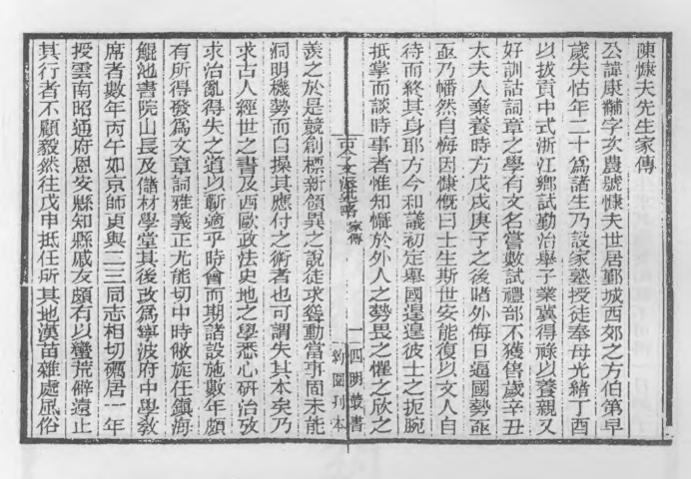 陳慷夫先生家傳
公諱康黼字次農號慷夫世居鄞城西郊之方伯第早
歲失怙年二十爲諸生乃設家塾授徒奉母光緒丁酉
以拔貢中式浙江鄉試勤治舉子業冀得祿以養親又
好訓詁詞章之學有文名嘗數試禮部不獲售歲辛丑
太夫人棄養時方戊戌庚子之後睹外侮日逼國勢亟
亟乃幡然自悔因慷慨曰士生斯世安能復以文人自
待而終其身耶方今和議初定舉國遑遑彼士之扼腕
抵掌而談時事者惟知懾於外人之勢畏之懼之欣之
古今文派述略 家傳
一 四明叢書
約園刊本
羨之於是競創標新領異之說徒求聳動當事固未能
洞明機勢而自操其應付之術者也可謂失其本矣乃
求古人經世之書及西歐政法史地之學悉心研治攷
求治亂得失之道以蘄適乎時會而期諸設施數年頗
有所得發爲文章詞雅義正尤能切中時敝旋任鎮海
鯤池書院山長及儲材學堂其後改爲寧波府中學教
席者數年丙午如京師更與二三同志相切礪居一年
授雲南昭通府恩安縣知縣戚友頗有以蠻荒僻遠止
其行者不顧毅然往戊申抵任所其地漢苗雜處風俗